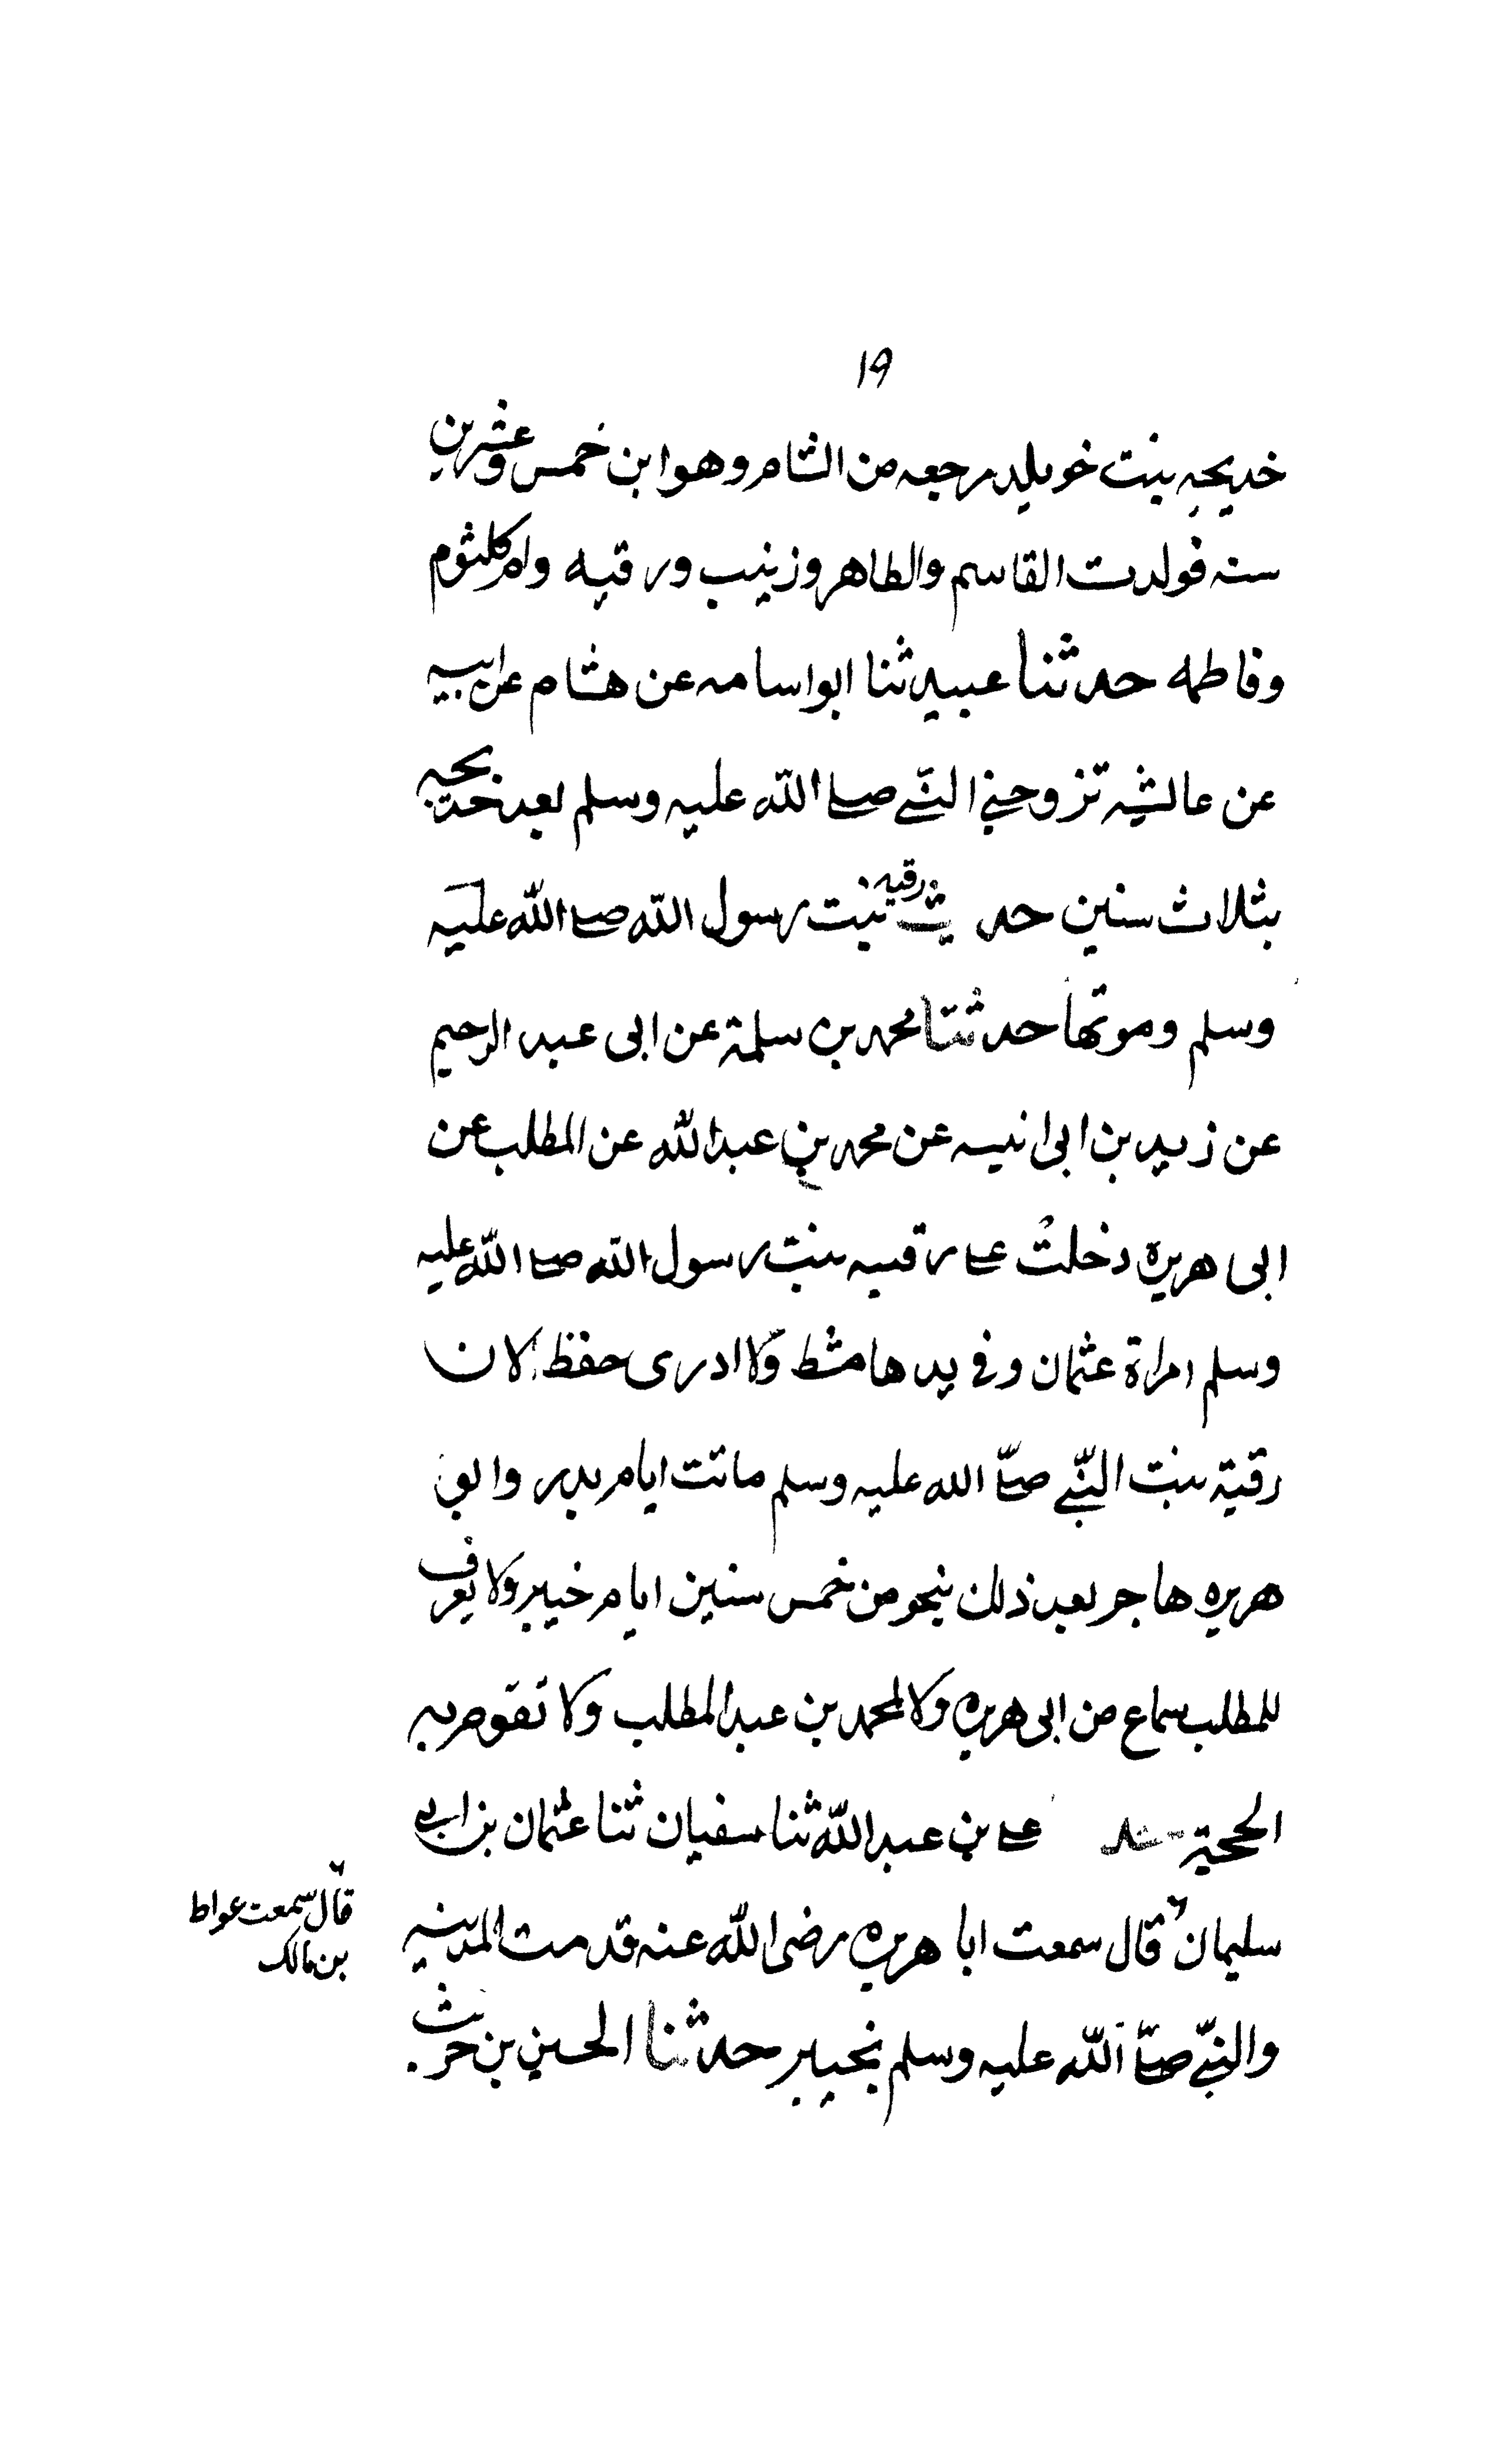 ۱۹
خديجه بنت خويلد مرجعه من الشام وهو ابن خمس وعشرين
سنه فولدت القاسم والطاهر وزينب ورقيه وام كلثوم
وفاطمه حدثنا عبيد ثنا ابواسامه عن هشام عن ابيه
عن عائشه تزوجني النبي صلى الله عليه وسلم بعد خديجه
بثلاث سنين حديث رقيه بنت رسول الله صلى الله عليه
وسلم وموتها حدثنا محمد بن سلمة عن ابى عبد الرحيم
عن زيد بن ابى انيسه عن محمد بن عبدالله عن المطلب عن
ابى هريره دخلت على رقيه بنت رسول الله صلى الله عليه
وسلم امراة عثمان وفي يدها مشط ولا ادرى حفظ لان
رقية بنت النبي صلى الله عليه وسلم ماتت ايام بدر وابو
هريره هاجر بعد ذلك بنحو من خمس سنين ايام خيبر ولا يعرف
للمطلب سماع من ابى هريره ولا لمحمد بن عبد المطلب ولا تقوم به
الحجة على بن عبدالله ثنا سفيان ثنا عثمان بن ابى
سليمان قال سمعت ابا هريره رضى الله عنه قدمت المدينه
قال سمعت عواط
بن مالك
والنبي صلى الله عليه وسلم بخيبر حدثنا الحسين بن حريث